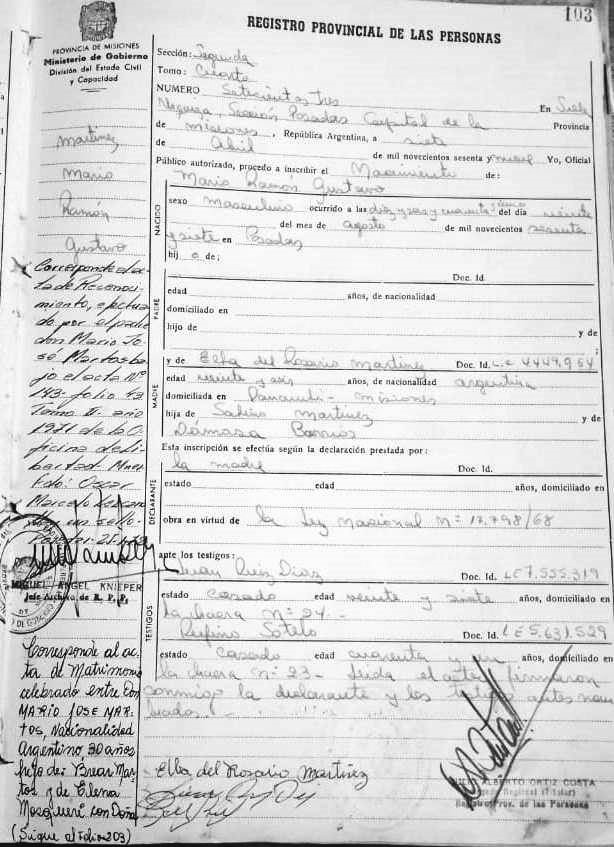 103
REGISTRO PROVINCIAL DE LAS PERSONAS
PROVINCIA DE MISIONES
Ministerio de Gobierno
División del Estado Civil
y Capacidad
Martinez
Mario
Ramón
Gustavo
Corresponde el ac
ta de Reconoci-
miento, efectua
do por el padre
don Mario Jo-
sé Martos ba-
jo el acta Nº
143- folio 43
Tomo II. año
1971 de la O
ficina de Li-
bertad- Mnes
Fdo: Oscar
Marcelo
un sello-
MIGUEL ANGEL KNIEPER
Jefe Archivo de R. P. P.
Corresponde al ac
ta de Matrimonio
celebrado entre Con
MARIO JOSE MAR-
TOS, Nacionalidad
Argentino, 30 años
hijo de: Mar
tos y de Elena
con Doña
(Sigue al folio 203)
Sección: Segunda
Tomo: Cuarto
NUMERO Setecientos tres En
Sección Posadas Capital de la Provincia
de Misiones, República Argentina, a siete
de Abril de mil novecientos sesenta y nueve Yo, Oficial
Público autorizado, procedo a inscribir el Nacimiento de:
Mario Ramón Gustavo
NACIDO
sexo masculino ocurrido a las del día veinte
y siete del mes de agosto de mil novecientos sesenta
en Posadas
hij o de;
PADRE
Doc. Id.
edad años, de nacionalidad
domiciliado en
hijo de y de
;
MADRE
y de Elba del Rosario Martinez Doc. Id. L.C 4.449.954
edad veinte y seis años, de nacionalidad argentina
domiciliada en Panambí - Misiones
hija de Martinez y de
Dámasa Barrios
Esta inscripción se efectúa según la declaración prestada por:
DECLARANTE
la madre Doc. Id.
estado edad años, domiciliado en
obra en virtud de la Ley Nacional Nº 17.798/68
TESTIGOS
ante los testigos:
Juan Ruiz Diaz Doc. Id. LE 7.555.319
estado casado edad veinte y siete años, domiciliado en
la chacra nº 24-
Rufino Sotelo Doc. Id. LE 5.631.529
estado Casado edad cuarenta y un años, domiciliado en
la chacra nº 23- Leída el acta firmaron
conmigo la declarante y los testigos antes nom
brados.
Elba del Rosario Martinez
ALBERTO ORTIZ COSTA
Registro Prov. de las Personas